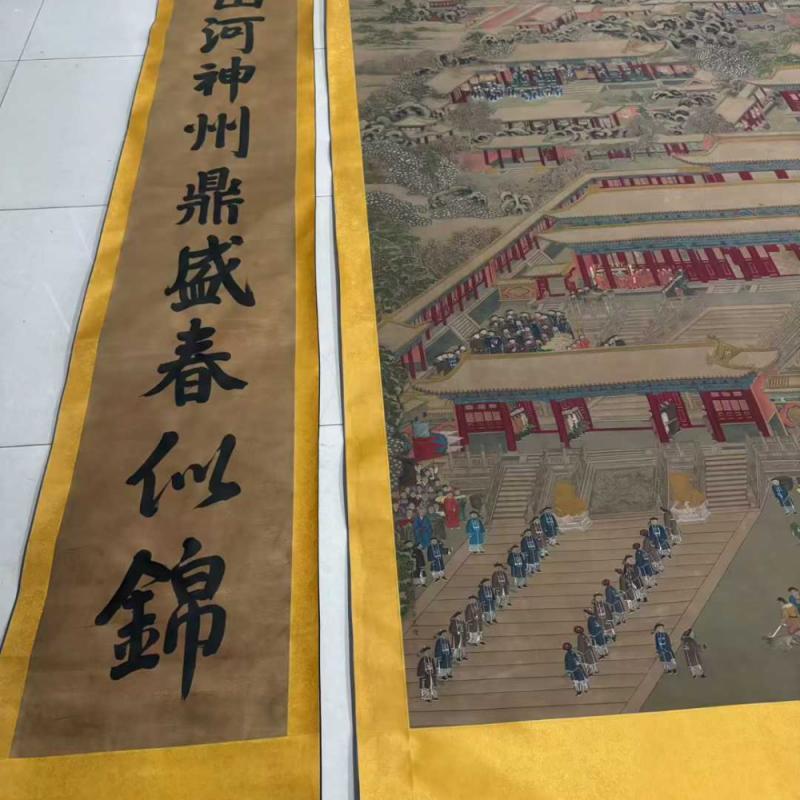 山河神州鼎盛春似錦